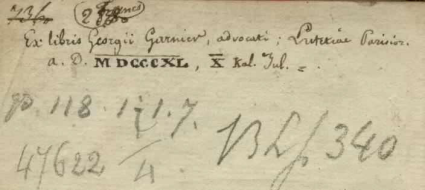 736 2 Francs
Ex libris Georgii Garnier, advocati; Lutetiae Parisior.
a. D. MDCCCXL, X Kal. Jul.
118.
340
47622